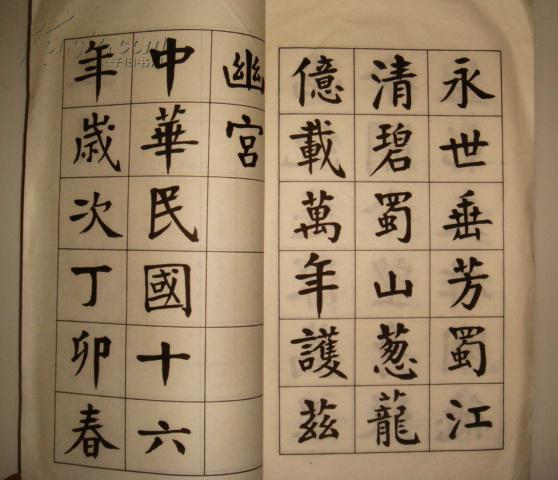 永世垂芳蜀江
清碧蜀山葱蘢
億載萬年護茲
幽宮
中華民國十六
年歲次丁卯春